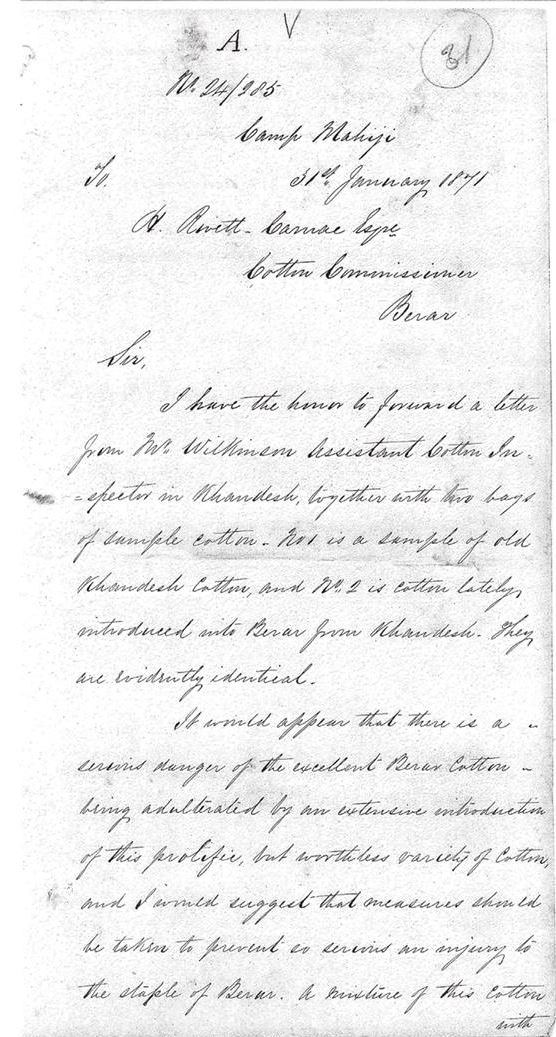 A.
31
No. 24/285
Camp Mahiji
To.
31st. January 1871
H. Rivett-Carnac Esqre
Cotton Commissioner
Berar
Sir,
I have the honor to forward a letter
from Mr. Wilkinson Assistant Cotton In=
=spector in Khandesh, together with two bags
of sample cotton - No 1 is a sample of old
Khandesh Cotton, and No. 2 is cotton lately
introduced into Berar from Khandesh. They
are evidently identical.
It would appear that there is a -
serious danger of the excellent Berar Cotton -
being adulterated by an extensive introduction
of this prolific, but worthless variety of Cotton,
and I would suggest that measures should
be taken to prevent so serious an injury to
the staple of Berar. A mixture of this Cotton
with